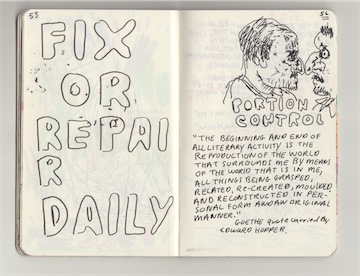 55
FIX
OR
REPAI
R
DAILY
56
PORTION
CONTROL
"THE BEGINNING AND END OF
ALL LITERARY ACTIVITY IS THE
REPRODUCTION OF THE WORLD
THAT SURROUNDS ME BY MEANS
OF THE WORLD THAT IS IN ME,
ALL THINGS BEING GRASPED,
RELATED, RE-CREATED, MOULDED
AND RECONSTRUCTED IN PER-
SONAL FORM AND AN ORIGINAL
MANNER."
GOETHE quote carried by
EDWARD HOPPER.